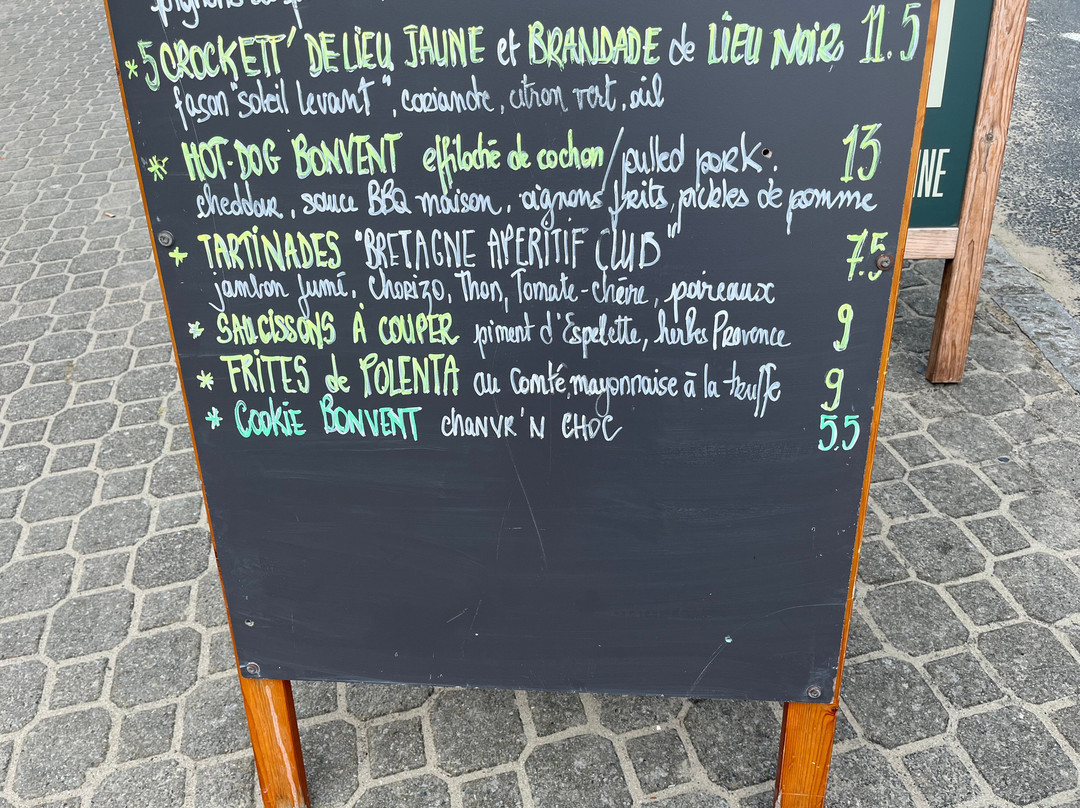 * 5 CROCKETT' DE LIEU JAUNE et BRANDADE de LIEU NOIR 11.5
façon "soleil levant", coriandre, citron vert, ail
* HOT-DOG BONVENT effiloché de cochon / pulled pork. 13
cheddar, sauce BBQ maison, oignons frits, pickles de pomme
* TARTINADES "BRETAGNE APERITIF CLUB" 7.5
jambon fumé, Chorizo, Thon, Tomate-chèvre, poireaux
* SAUCISSONS À COUPER piment d'Espelette, herbes Provence 9
* FRITES de POLENTA au Comté, mayonnaise à la truffe 9
* COOKIE BONVENT chanvr'N CHOC 5.5
NNE